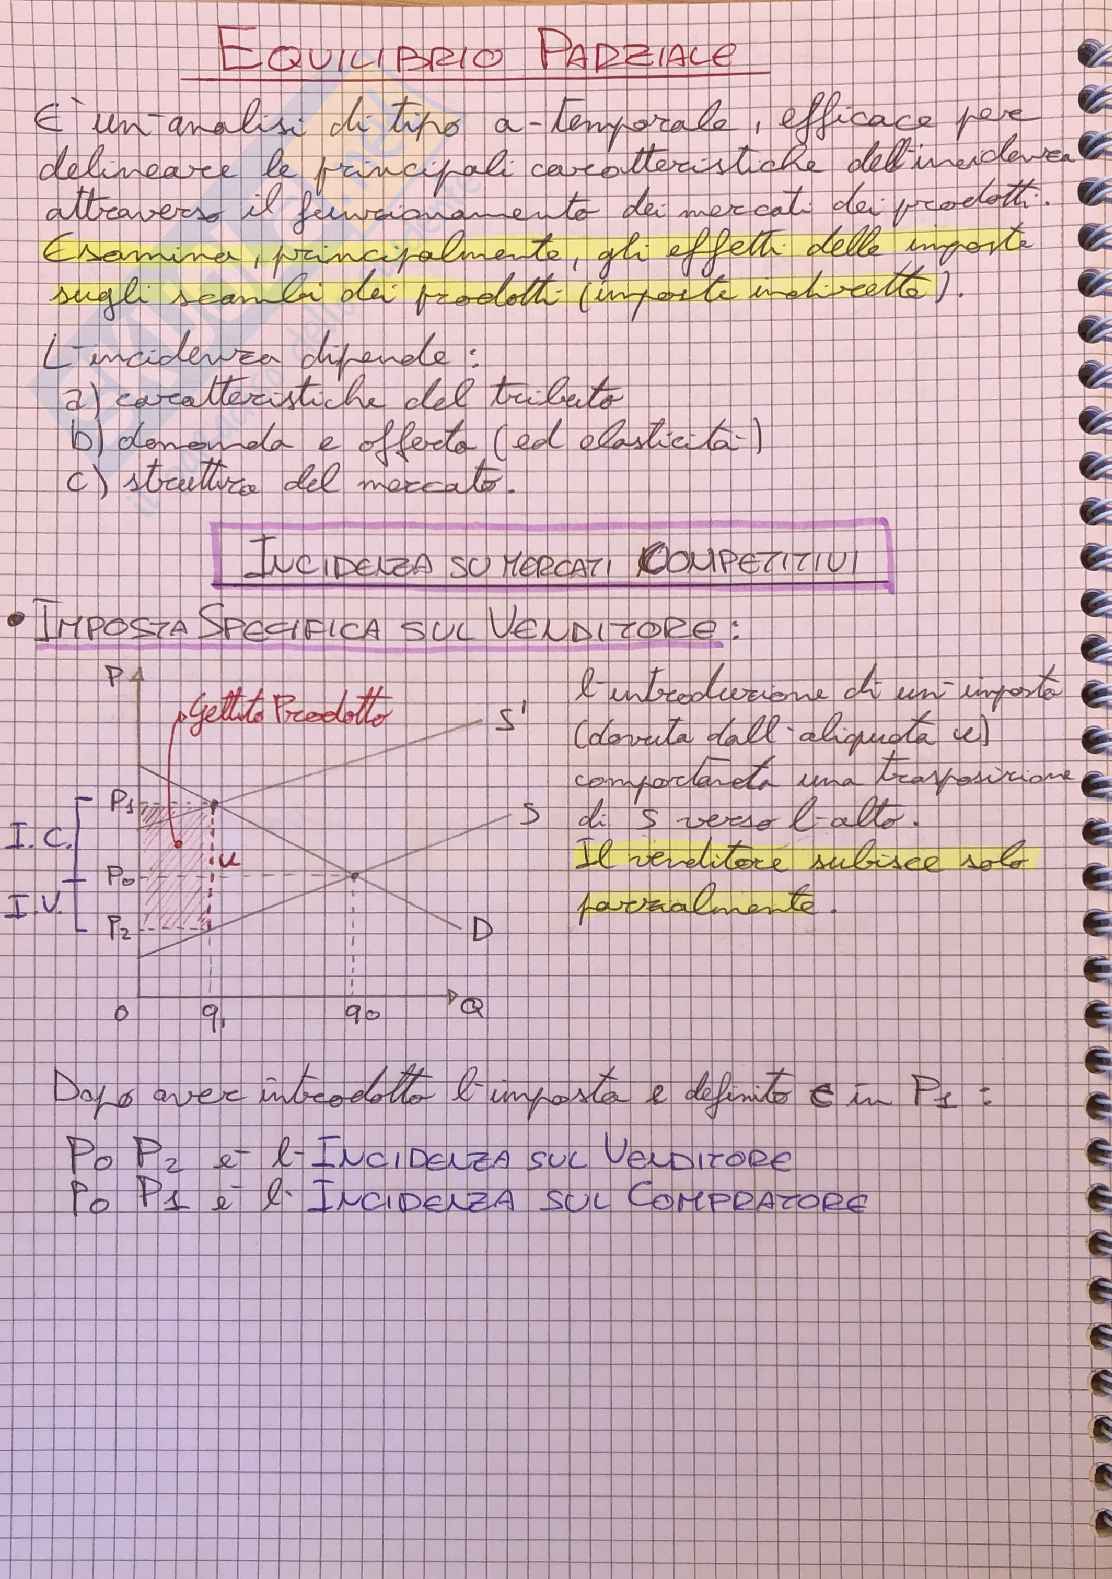 EQUILIBRIO PARZIALE
E' un'analisi di tipo a-temporale, efficace per
delineare le principali caratteristiche dell'incidenza
attraverso il funzionamento dei mercati dei prodotti.
Esamina, principalmente, gli effetti delle imposte
sugli scambi dei prodotti (imposte indirette).
L'incidenza dipende:
a) caratteristiche del tributo
b) domanda e offerta (ed elasticità)
c) struttura del mercato.
INCIDENZA SU MERCATI COMPETITIVI
• IMPOSTA SPECIFICA SUL VENDITORE:
P
Gettito Prodotto
S'
P1
S
I.C.
u
P0
I.V.
P2
D
0 q1 q0 Q
l'introduzione di un'imposta
(dovuta dall'aliquota u)
comporterà una trasposizione
di S verso l'alto.
Il venditore subisce solo
parzialmente.
Dopo aver introdotto l'imposta e definito C in P1:
P0 P2 è l'INCIDENZA SUL VENDITORE
P0 P1 è l'INCIDENZA SUL COMPRATORE